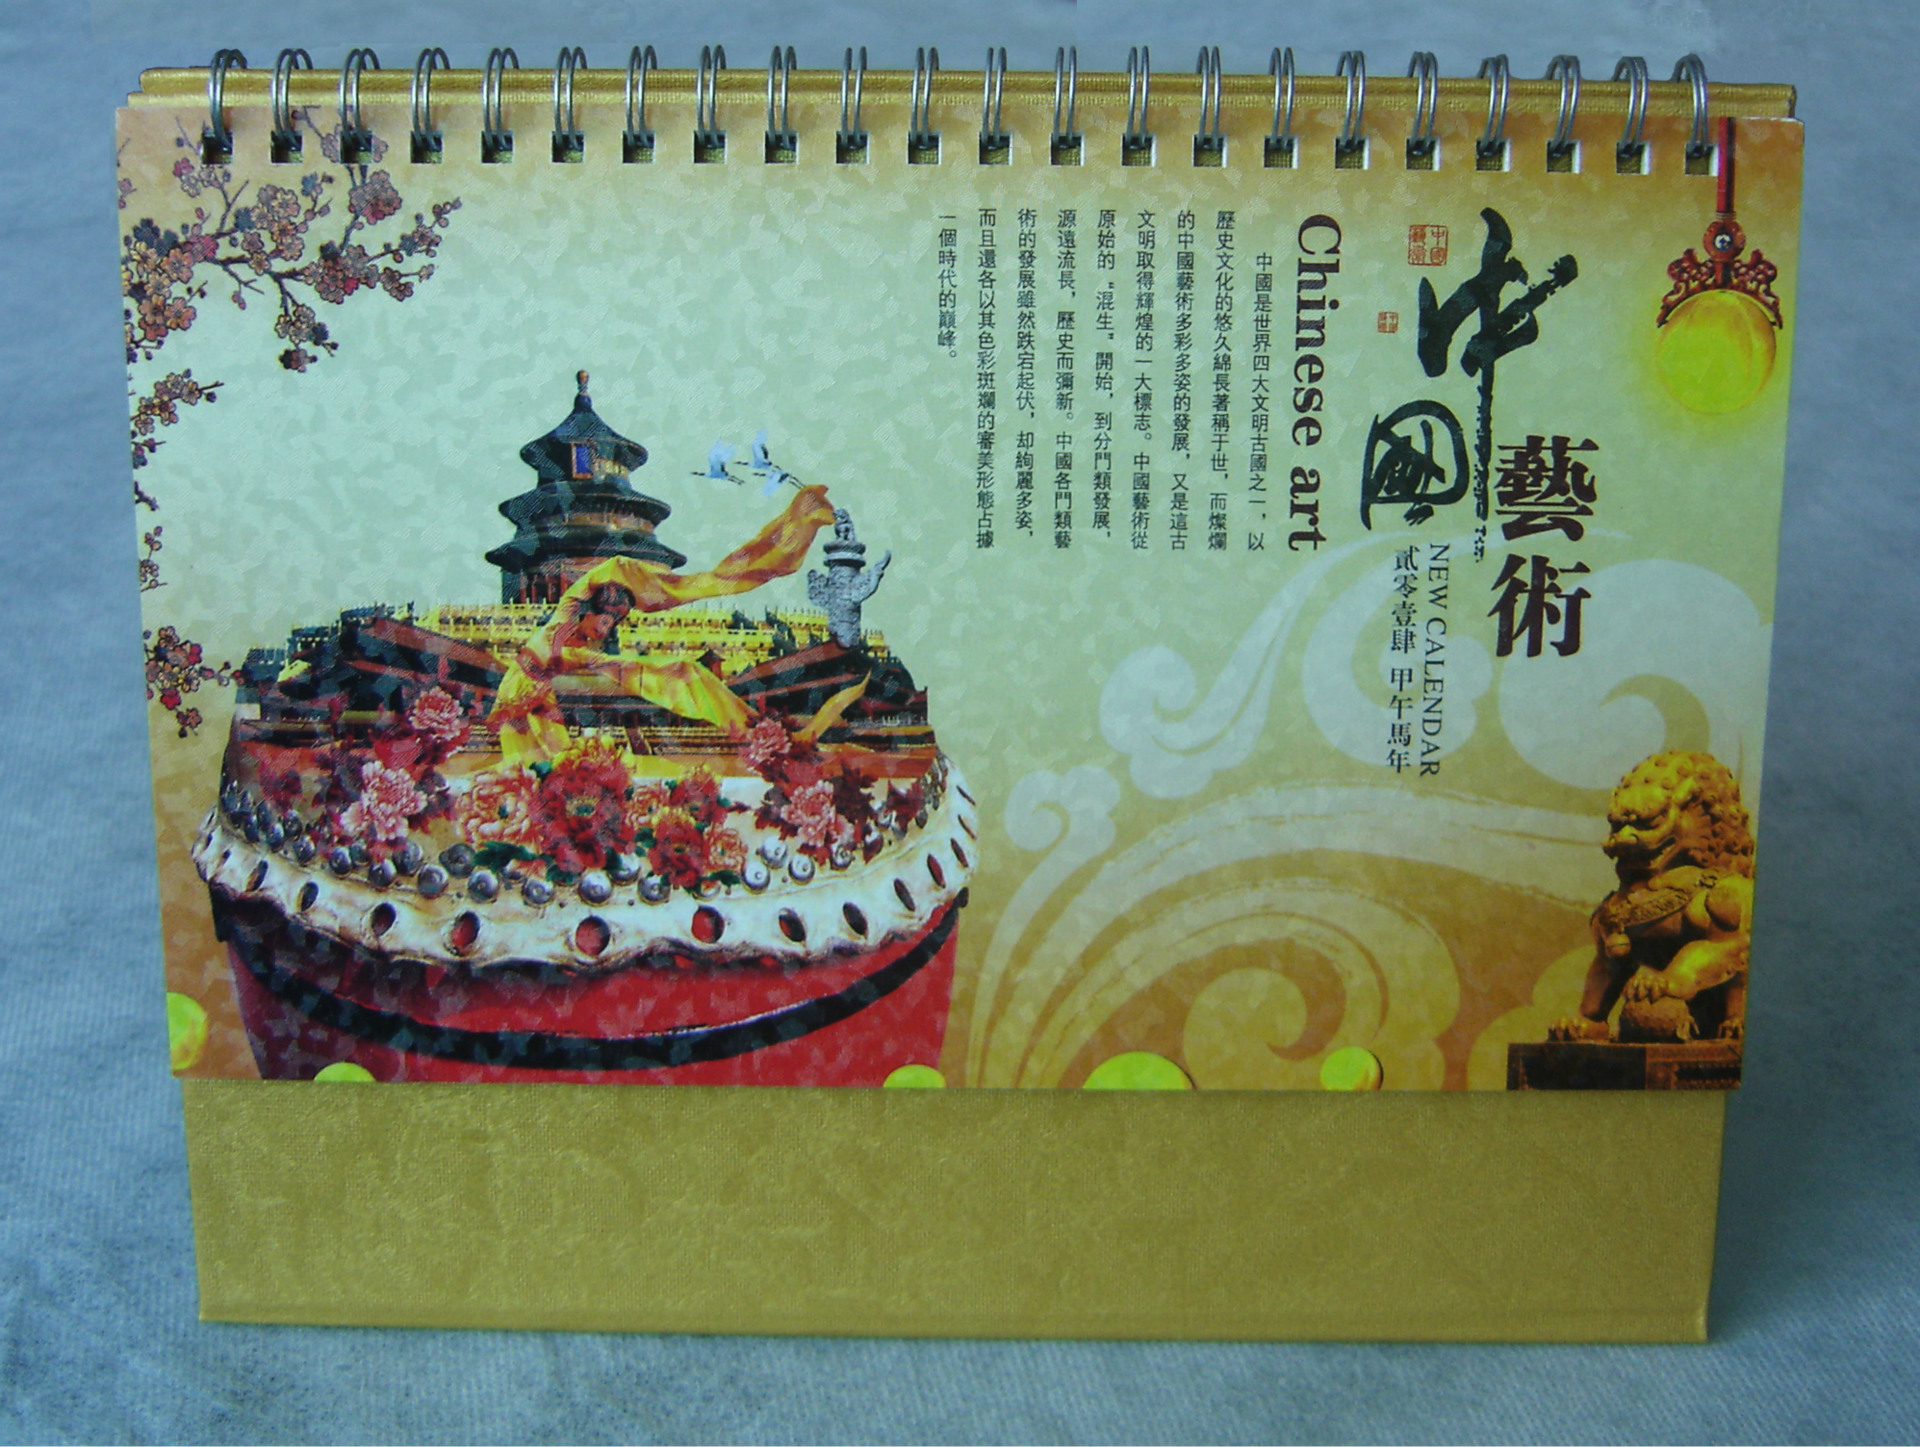 中國
藝術
NEW CALENDAR
貳零壹肆 甲午馬年
中國藝術
Chinese art
中國是世界四大文明古國之一，以
歷史文化的悠久綿長著稱于世，而燦爛
的中國藝術多彩多姿的發展，又是這古
文明取得輝煌的一大標志。中國藝術從
原始的“混生”開始，到分門類發展，
源遠流長，歷史而彌新。中國各門類藝
術的發展雖然跌宕起伏，却絢麗多姿，
而且還各以其色彩斑斕的審美形態占據
一個時代的巔峰。